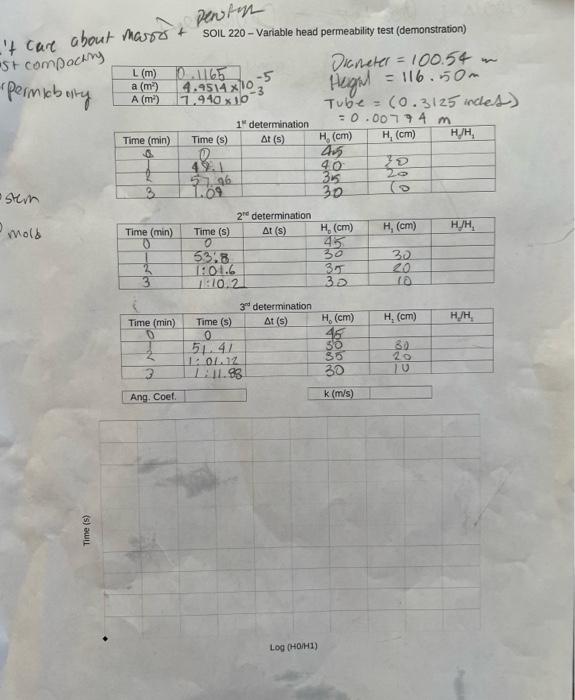 Density
't care about masses + SOIL 220 – Variable head permeability test (demonstration)
st compacting
permeability
Diameter = 100.54 m
Height = 116.50m
Tube = (0.3125 inches)
= 0.00794 m
L (m) 0.1165
a (m²) 4.9514 x 10-5
A (m²) 7.940 x 10-3
1st determination
Time (min) Time (s) Δt (s) H₀ (cm) H₁ (cm) H₀/H₁
0 0 45
49.1 40 30
2 57.96 35 20
3 1.09 30 10
stem
mold
2nd determination
Time (min) Time (s) Δt (s) H₀ (cm) H₁ (cm) H₀/H₁
0 0 45
1 53.8 30 30
2 1:01.6 35 20
3 1:10.2 30 10
3rd determination
Time (min) Time (s) Δt (s) H₀ (cm) H₁ (cm) H₀/H₁
0 0 45
51.41 30 30
2 1:01.12 35 20
3 1:11.98 30 10
Ang. Coef. k (m/s)
Time (s)
Log (H0/H1)